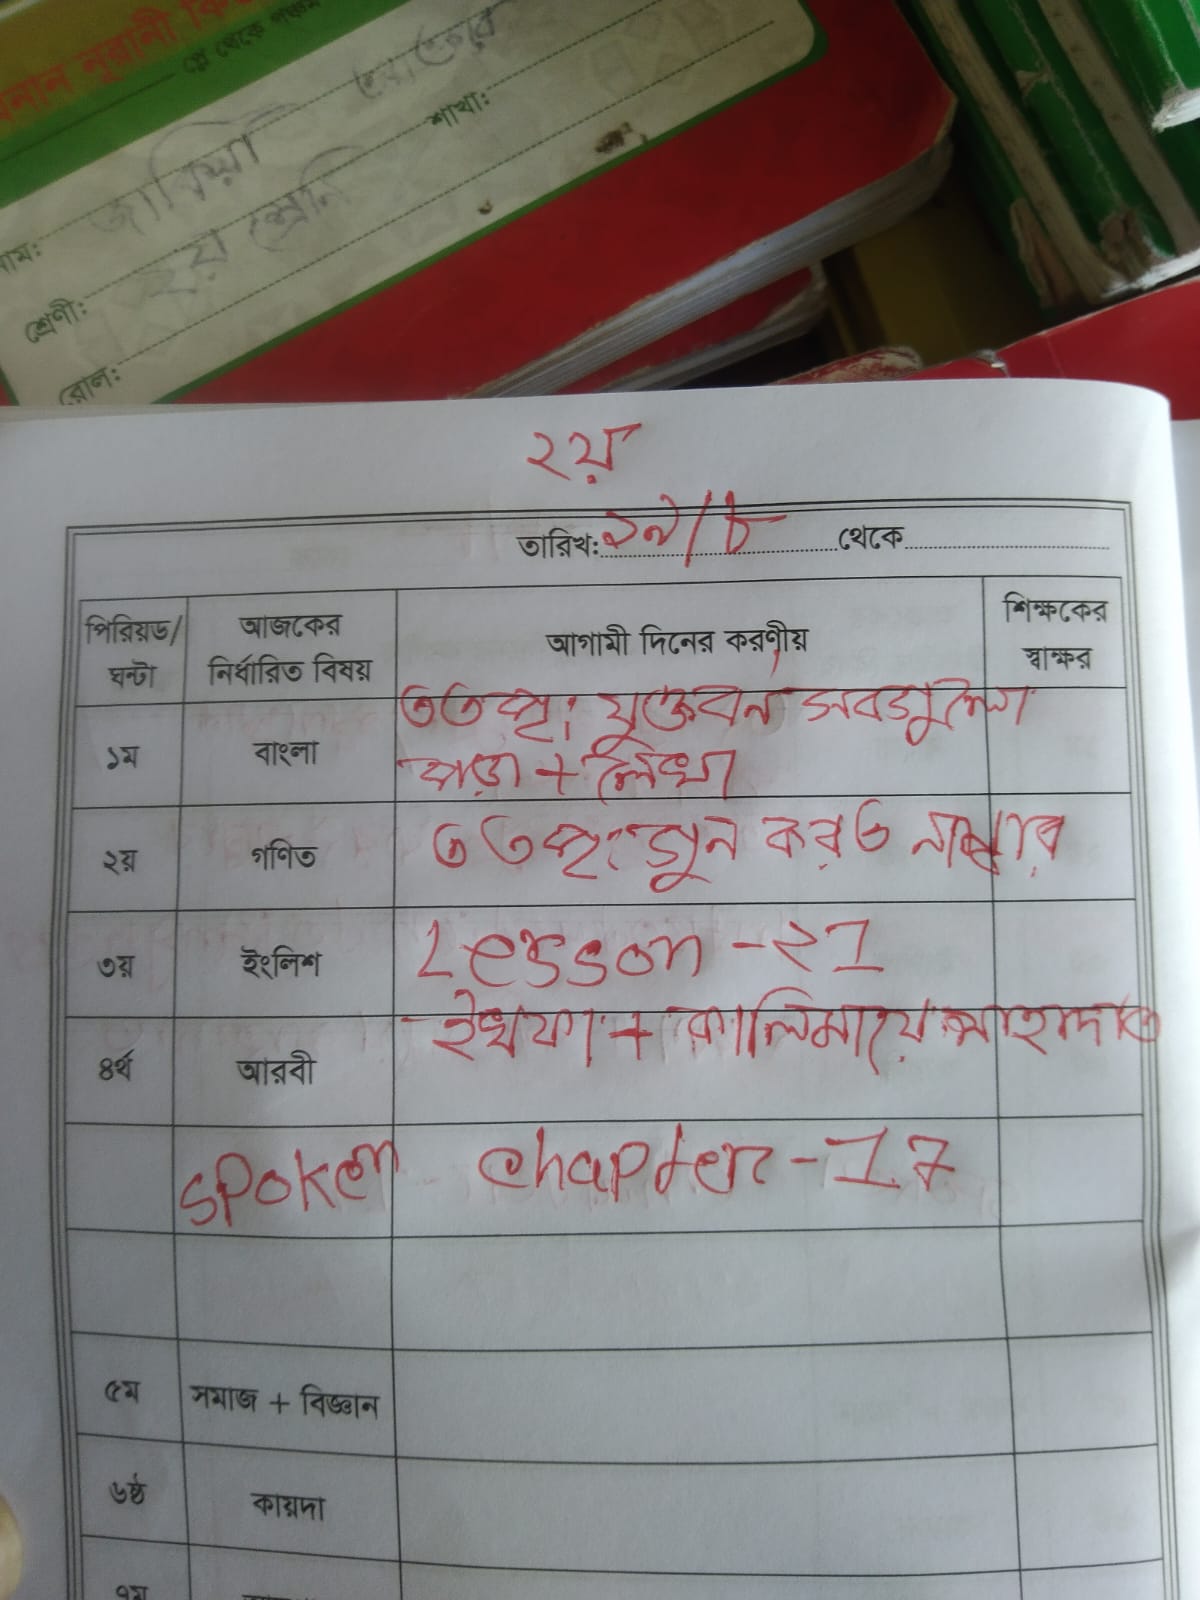 থেকে পঞ্চম
শাখা:
নাম: জাকিয়া
শ্রেণী: ২য় শ্রেনি
রোল:
২য়
তারিখ: ২৭/৮ থেকে
পিরিয়ড/ঘন্টা আজকের নির্ধারিত বিষয় আগামী দিনের করণীয় শিক্ষকের স্বাক্ষর
১ম বাংলা ৩৩পৃ: যুক্তবর্ন সবগুলো
পড়া + লিখা
২য় গণিত ৩৩পৃ: গুন কর ৩ নাম্বার
৩য় ইংলিশ Lesson - 21
৪র্থ আরবী ইখফা + কালিমায়ে শাহাদাত
Spoken chapter - 17
৫ম সমাজ + বিজ্ঞান
৬ষ্ঠ কায়দা
৭ম